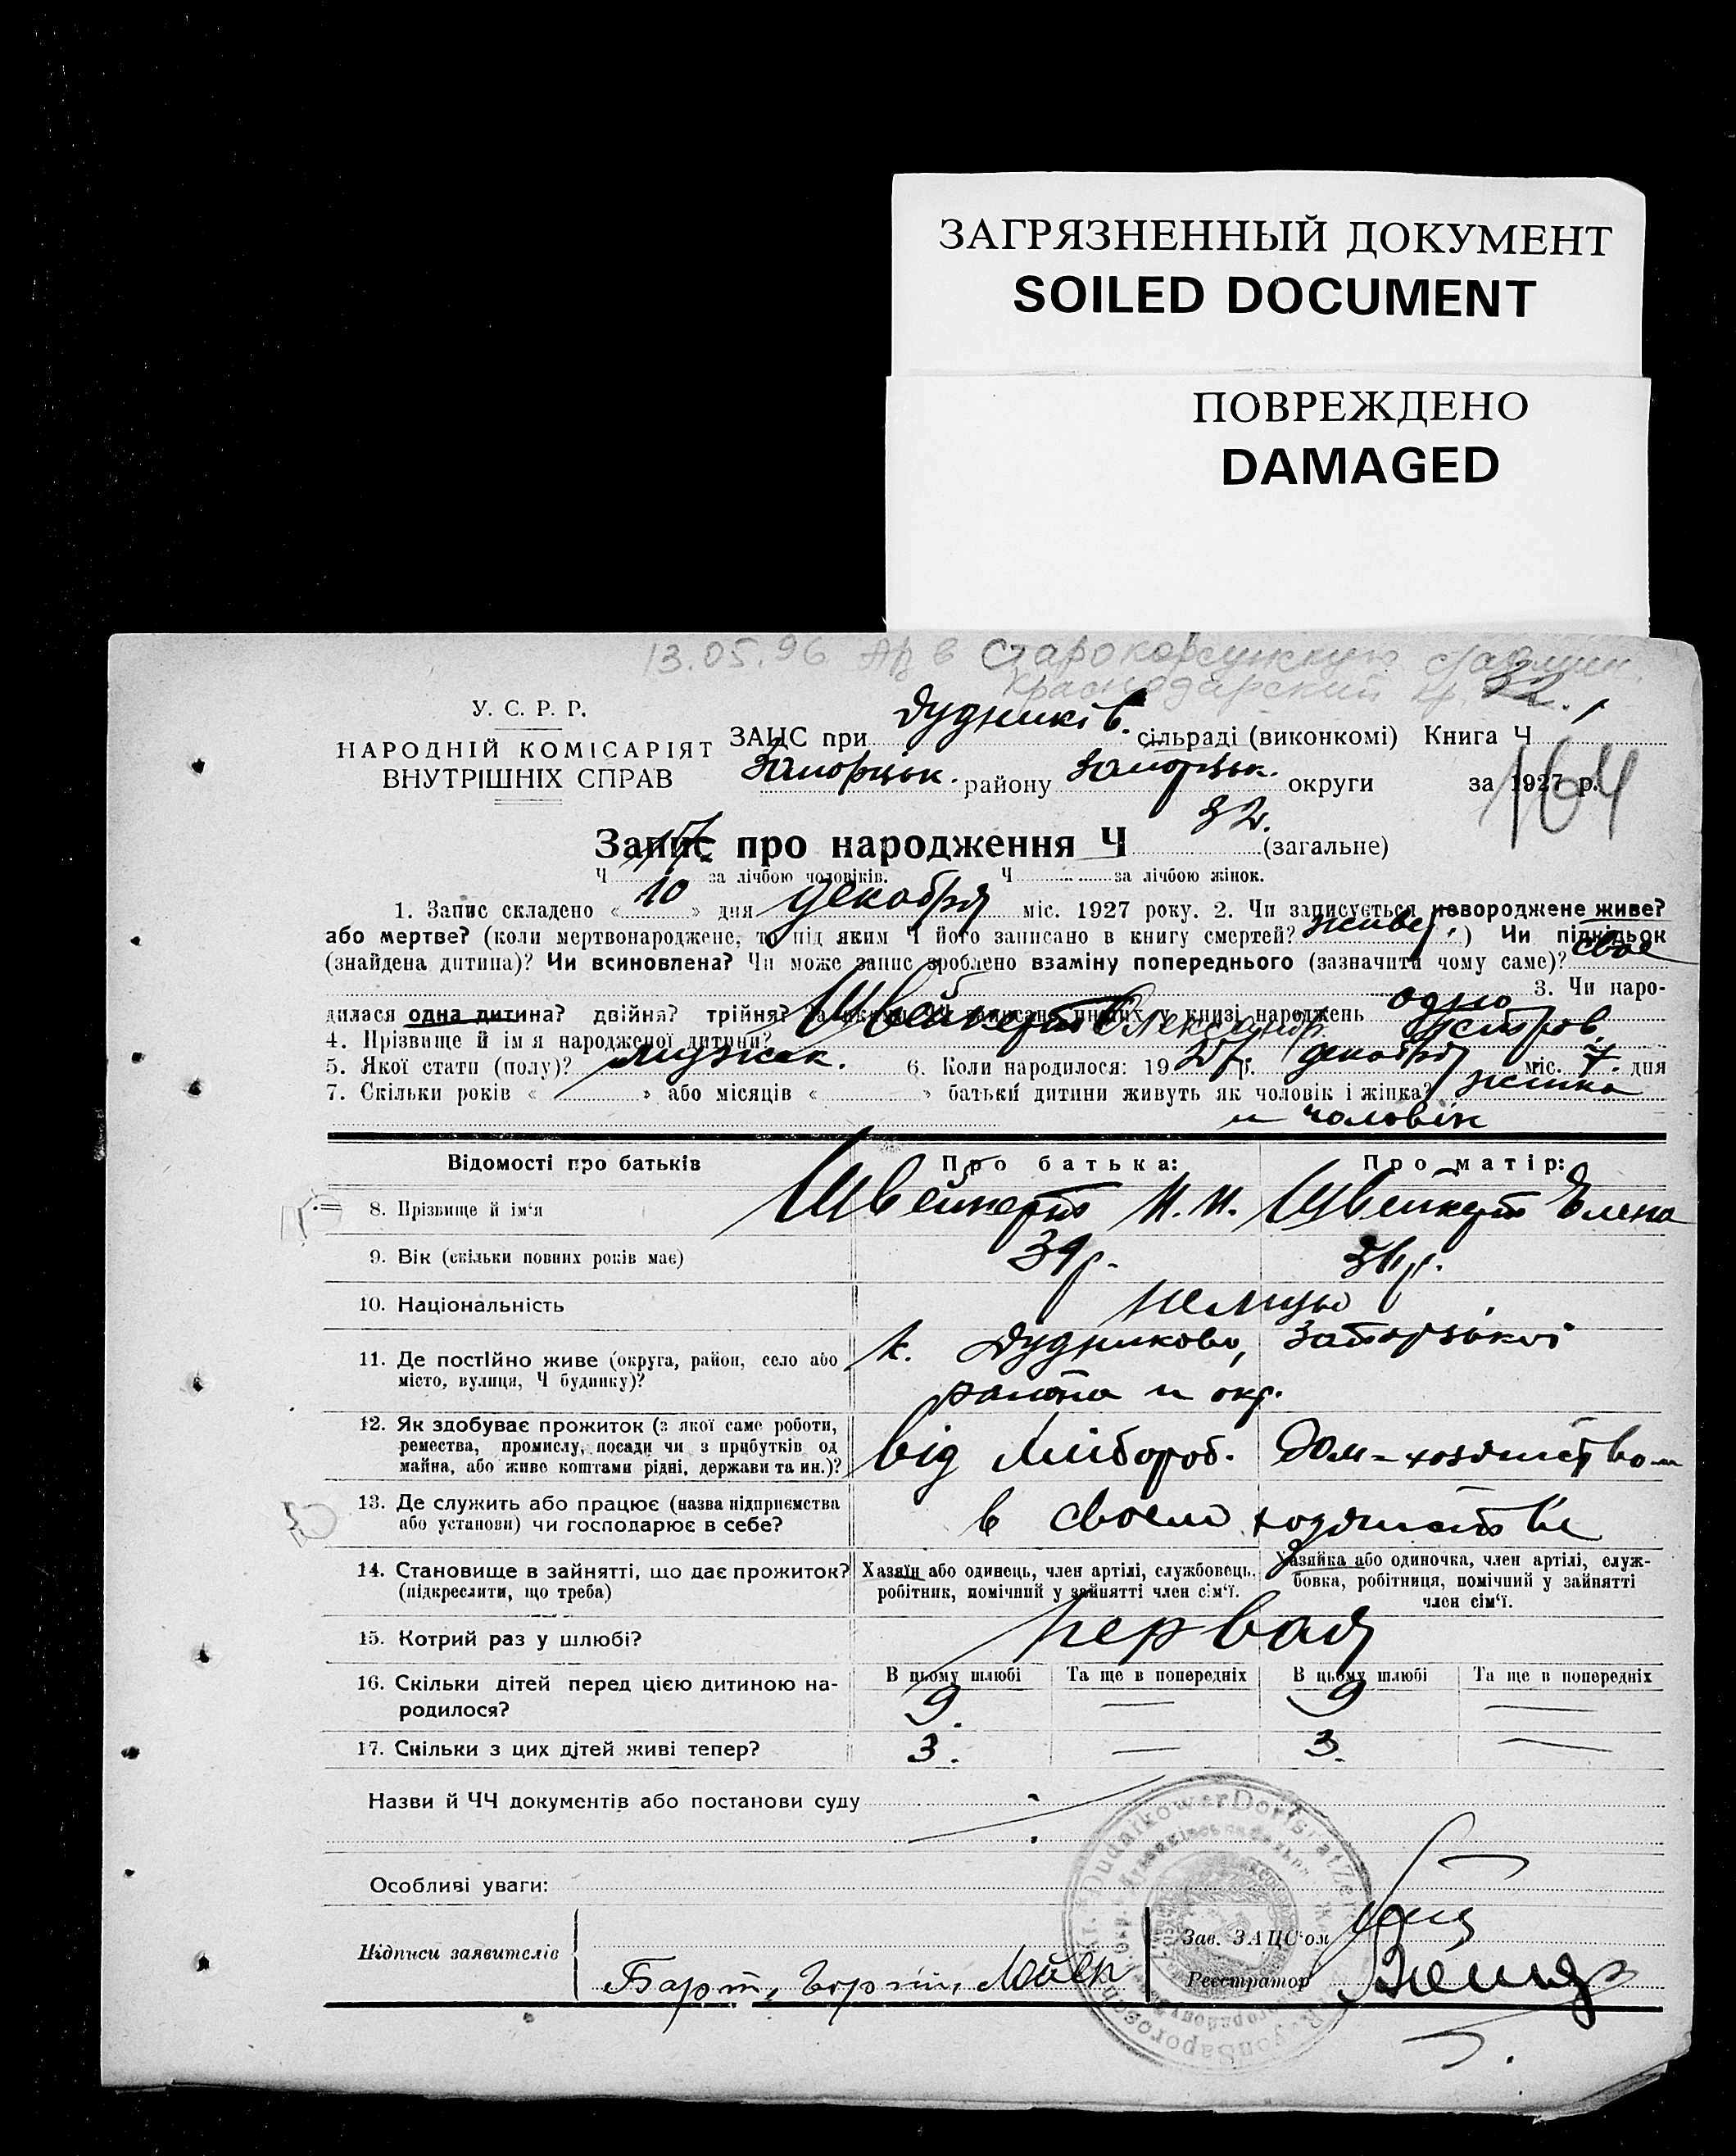 ЗАГРЯЗНЕННЫЙ ДОКУМЕНТ
SOILED DOCUMENT
ПОВРЕЖДЕНО
DAMAGED
13.05.96 в Старокорсунскую
Краснодарский 32.
У. С. Р. Р.
НАРОДНІЙ КОМІСАРІЯТ
ВНУТРІШНІХ СПРАВ
ЗАЦС при Дудників. сільраді (виконкомі) Книга Ч 1
Запорізьк. району Запорізьк. округи за 1927 р.
164
Запис про народження Ч 32. (загальне)
Ч 17. за лічбою чоловіків. Ч за лічбою жінок.
1. Запис складено « 10 » дня декабря міс. 1927 року. 2. Чи записується новороджене живе?
або мертве? (коли мертвонароджене, то під яким Ч його записано в книгу смертей? живе.) Чи підкідьок
(знайдена дитина)? Чи всиновлена? Чи може запис зроблено взаміну попереднього (зазначити чому саме)? своє
3. Чи наро-
дилася одна дитина? двійня? трійня? За якими ЧЧ записано инших у книзі народжень одно
4. Прізвище й ім'я народженої дитини? Швейкерт Олександр
5. Якої стати (полу)? мужск. 6. Коли народилося: 19 27 р. декабря міс. 7 дня
7. Скільки років « » або місяців « » батьки дитини живуть як чоловік і жінка? жинка
и чоловік
Відомості про батьків Про батька: Про матір:
8. Прізвище й ім'я Швейкерт Швейкерт Елена
9. Вік (скільки повних років має) 39 р. 36 р.
10. Національність немцы
11. Де постійно живе (округа, район, село або
місто, вулиця, Ч будинку)? к. Дудниково, Запорізької
района и окр.
12. Як здобуває прожиток (з якої саме роботи,
ремества, промислу, посади чи з прибутків од
майна, або живе коштами рідні, держави та ин.)? від хлібороб. Дом-хозяйством
13. Де служить або працює (назва підприємства
або установи) чи господарює в себе? в своем хозяйстве
14. Становище в зайнятті, що дає прожиток?
(підкреслити, що треба)
Хазяїн або одинець, член артілі, службовець,
робітник, помічний у зайнятті член сім'ї.
Хазяйка або одиночка, член артілі, служ-
бовка, робітниця, помічний у зайнятті
член сім'ї.
15. Котрий раз у шлюбі? первая
В цьому шлюбі Та ще в попередніх В цьому шлюбі Та ще в попередніх
16. Скільки дітей перед цією дитиною на-
родилося? 9. — 9 —
17. Скільки з цих дітей живі тепер? 3. — 3. —
Назви й ЧЧ документів або постанови суду
Особливі уваги:
Підписи заявителів
Барт,
Зав. ЗАЦС'ом
Реєстратор
Dudnikower Dorfsrat